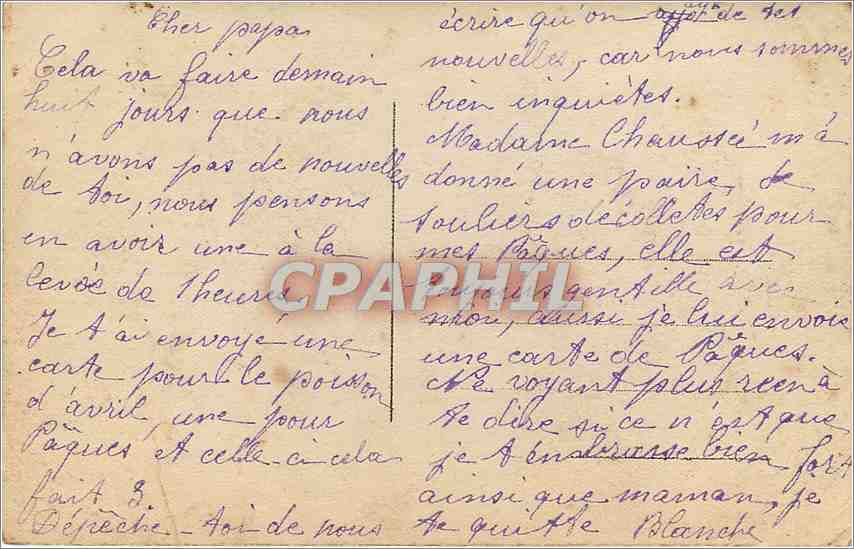 Cher papa
Cela va faire demain
huit jours que nous
n'avons pas de nouvelles
de toi, nous pensons
en avoir une à la
levée de 1 heures,
Je t'ai envoyé une
carte pour le poisson
d'avril, une pour
Pâques et celle-ci cela
fait 3
Dépêche-toi de nous
écrire qu'on de tes
nouvelles, car nous sommes
bien inquiètes.
Madame Chaussée m'a
donné une paire de
souliers décolletés pour
mes Pâques, elle est
toujours gentille avec
moi, aussi je lui envoie
une carte de Pâques.
Ne voyant plus rien à
te dire si ce n'est que
je t'embrasse bien fort
ainsi que maman, je
te quitte Blanche
CPAPHIL